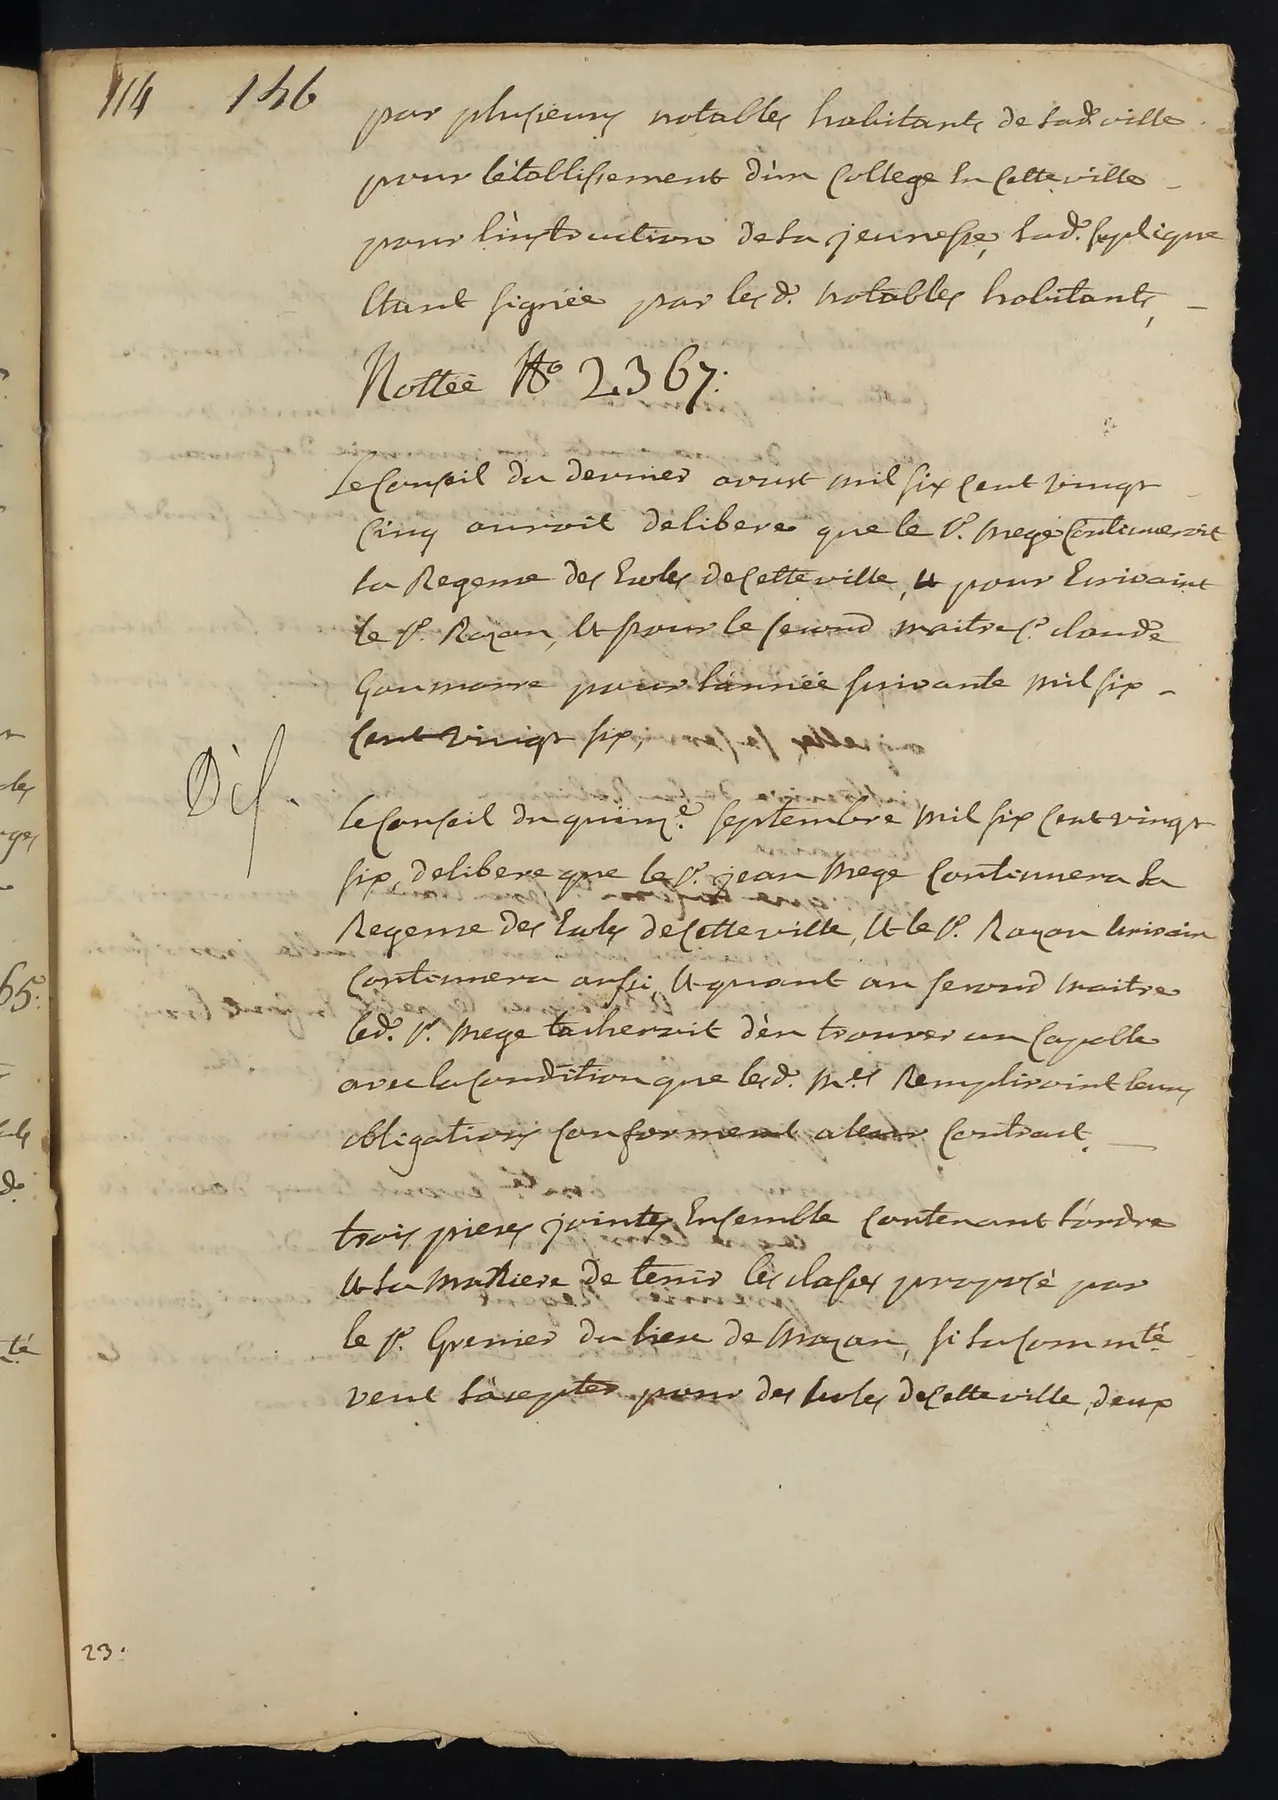 114 146
par plusieurs notables habitants de lad. ville
pour létablissement d'un College En Cette ville
pour l'instruction de la jeunesse, lad. suplique
Etant signée par lesd. notables habitants,
Nottée No 2367:
Le Conseil du dernier aoust mil six Cent vingt
Cinq auroit delibere que le Sr. Mege Continueroit
la Regense des Ecoles de Cette ville, Et pour Ecrivaint
le Sr. Razan, Et pour le second maitre Sr. claude
Goumarre pour l'année suivante mil six
Cent vingt six,
Le Conseil du quinze. septembre mil six Cent vingt
six, delibere que le Sr. jean Mege Continuera la
Regense des Ecoles de Cette ville, Et le Sr. Razan Ecrivain
Continuera aussi, Et quant au second maitre
led. Sr. Mege tacheroit d'èn trouver un Capable
avec la Condition que lesd. Mes Rempliroint leurs
obligations Conformement a leur Contract.
trois pieces jointes Ensemble Contenant l'ordre
Et la maniere de tenir les classes proposé par
le Sr. Grenier du lieu de Mazan, si la Commté.
veut l'àcepter pour des Ecoles de Cette ville, deux
23: